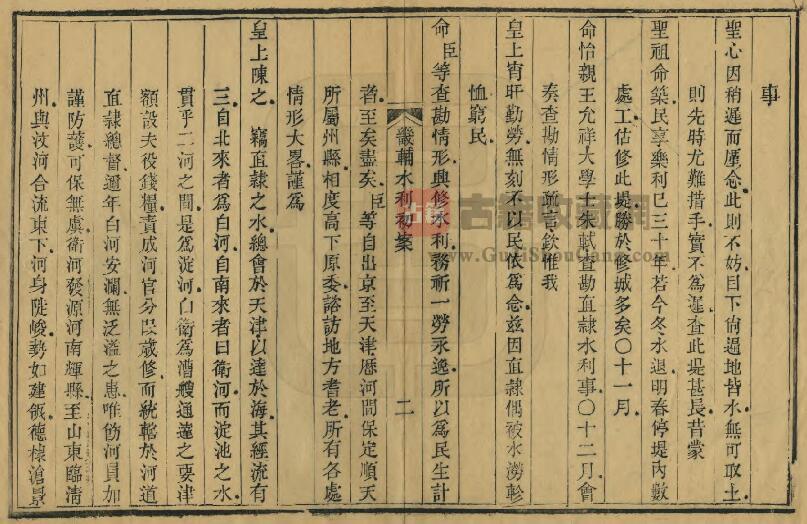 事
聖心因稍遲而厪念此則不妨目下倘過地皆水無可取土
則先時尤難措手實不爲遲查此堤甚長昔蒙
聖祖命築民享樂利已三十年若今冬水退明春停堤內數
處工估修此堤勝於修城多矣〇十一月
命怡親王允祥大學士朱軾查勘直隸水利事〇十二月會
奏查勘情形疏言欽惟我
皇上宵旰勤勞無刻不以民依爲念茲因直隸偶被水澇軫
恤窮民
命臣等查勘情形興修水利務祈一勞永逸所以爲民生計
畿輔水利初案 二
者至矣盡矣臣等自出京至天津歷河間保定順天
所屬州縣相度高下原委諮訪地方耆老所有各處
情形大畧謹爲
皇上陳之竊直隸之水總會於天津以達於海其經流有
三自北來者爲白河自南來者曰衛河而淀池之水
貫乎二河之間是爲淀河白衛爲漕艘通達之要津
額設夫役錢糧責成河官分段歲修而統轄於河道
直隸總督邇年白河安瀾無泛溢之患唯飭河員加
謹防護可保無虞衛河發源河南輝縣至山東臨清
州與汶河合流東下河身陡峻勢如建瓴德棣滄景
古籍收藏网
www.GujiShouCang.com